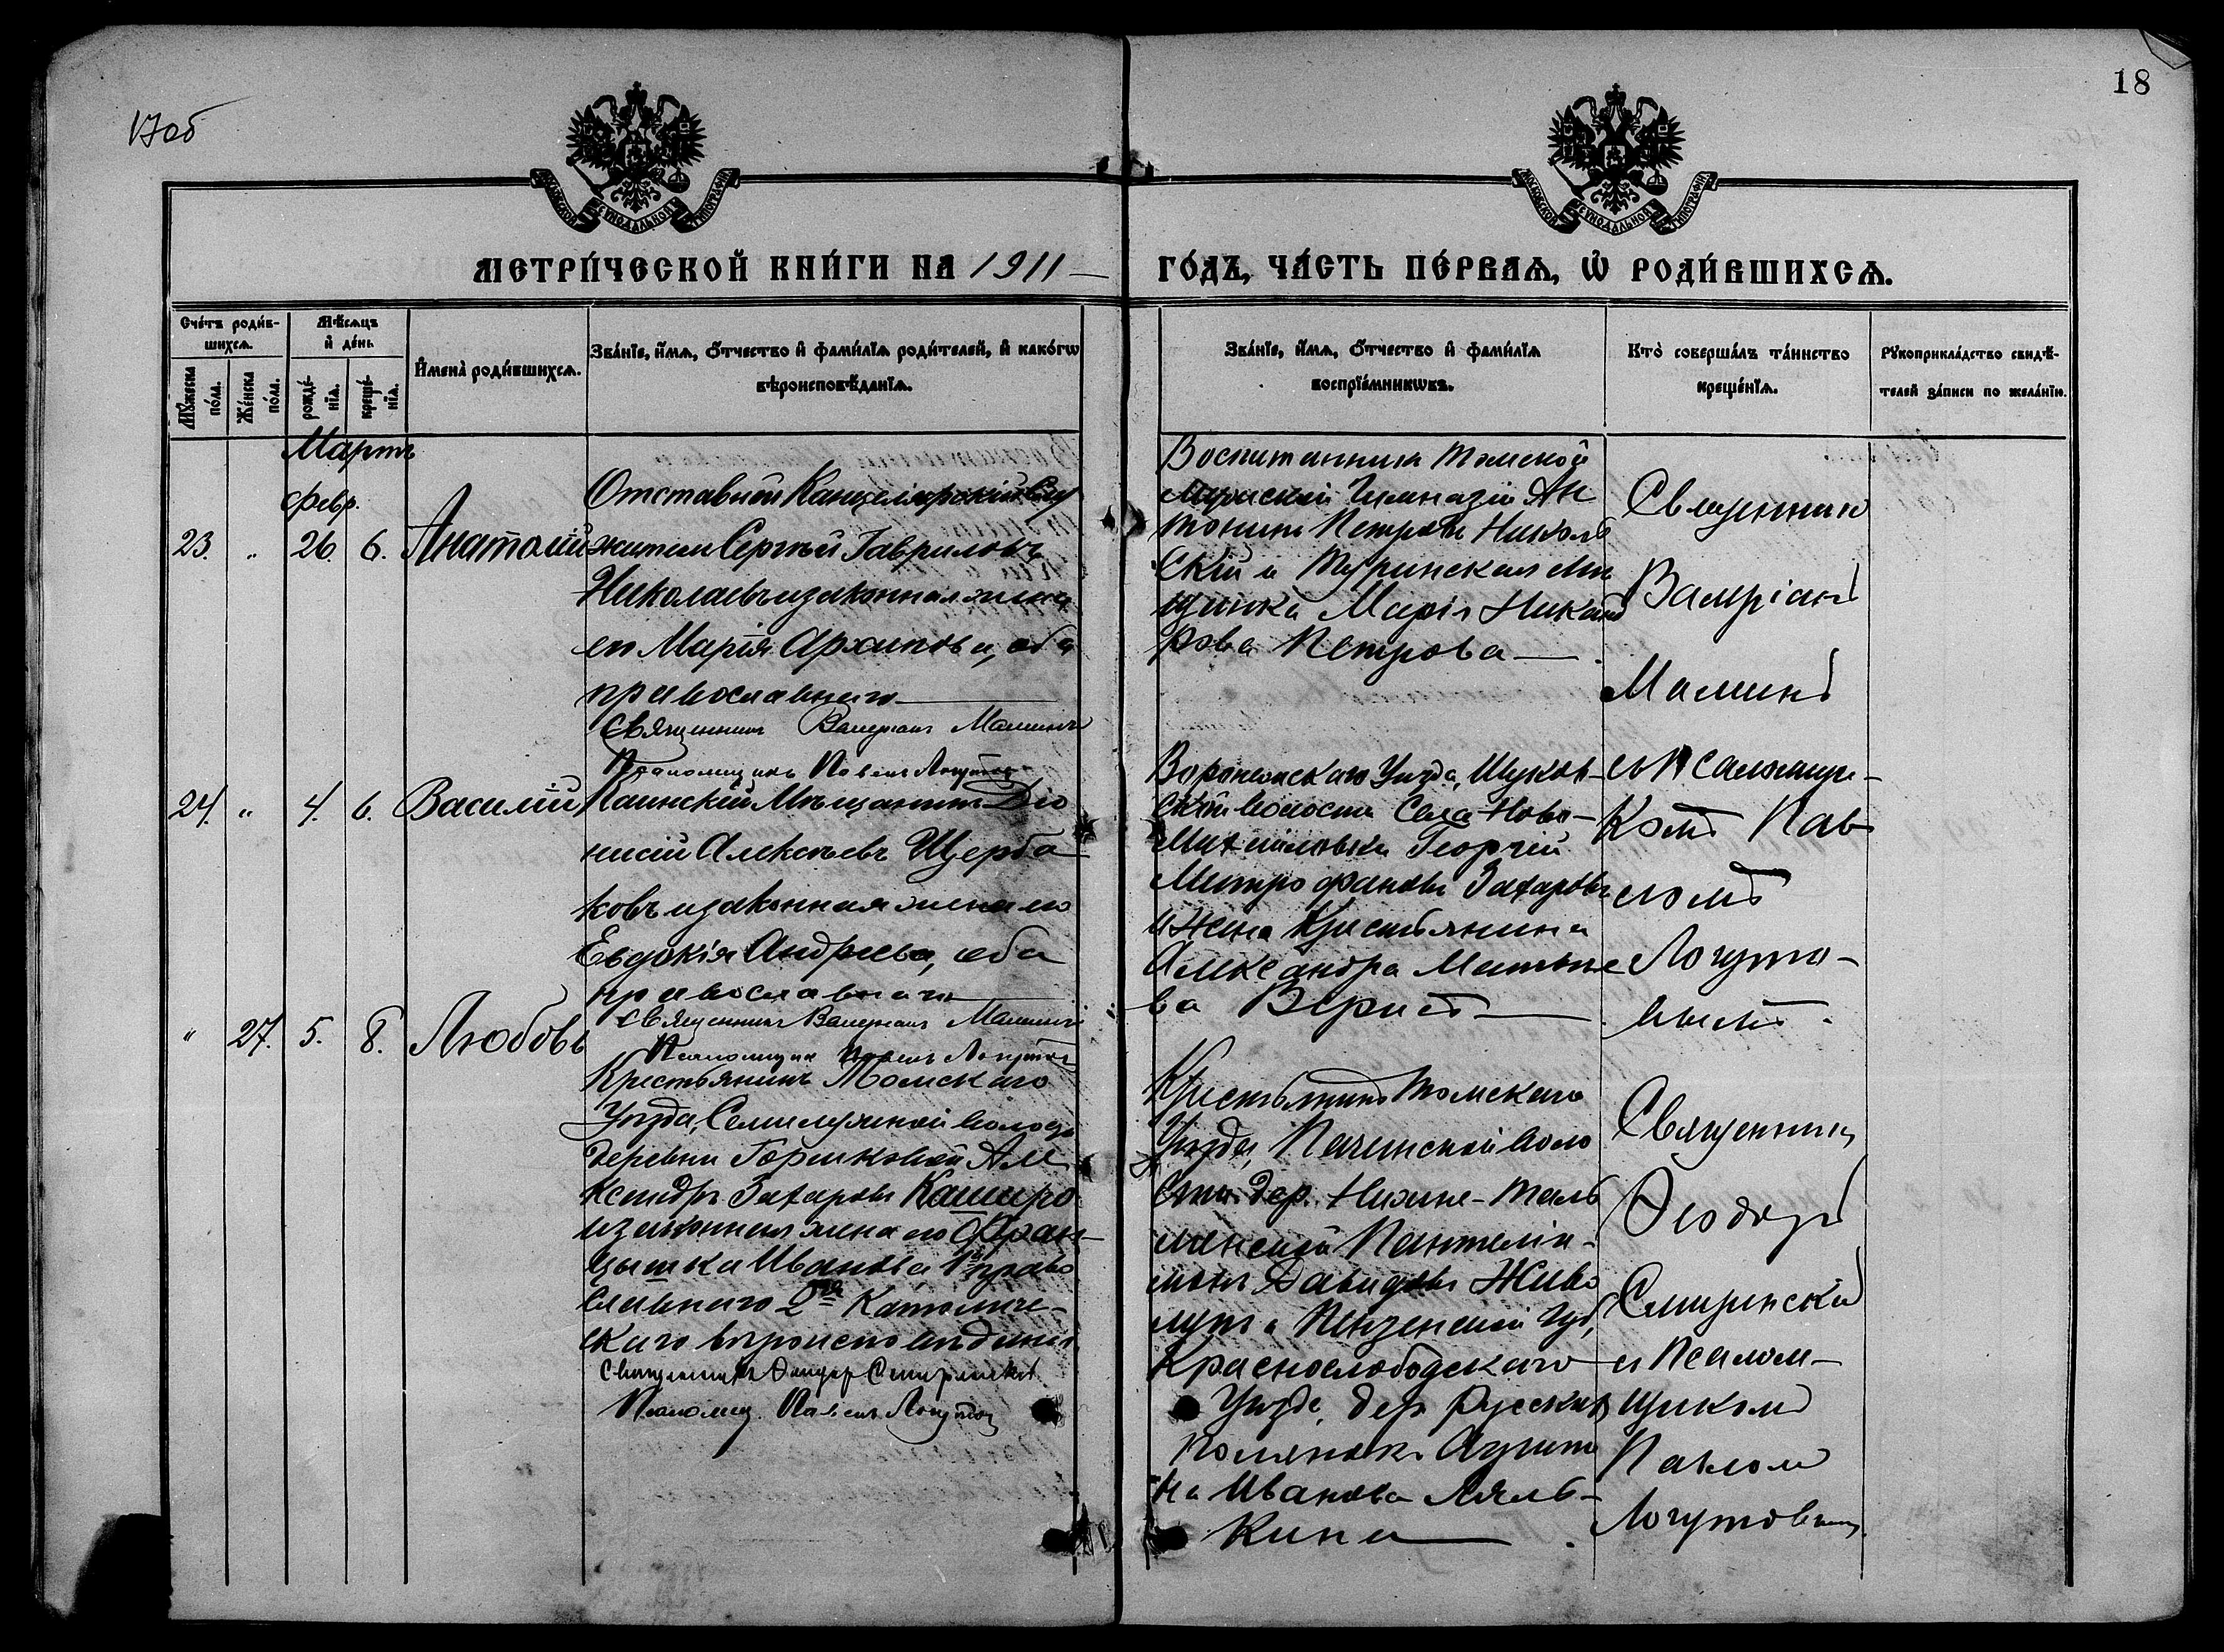 17об
18
МОСКОВСКОЙ СѴНОДАЛЬНОЙ ТИПОГРАФІИ
МОСКОВСКОЙ СѴНОДАЛЬНОЙ ТИПОГРАФІИ
МЕТРИ́ЧЕСКОЙ КНИ́ГИ НА 1911 ГО́ДЪ, ЧА́СТЬ ПЕ́РВАѦ, Ѡ҆ РОДИ́ВШИХСѦ.
Сче́тъ роди́в-
шихсѧ.
Мꙋ́жеска по́ла.
Же́нска по́ла.
Мѣ́сѧцъ
и҆ де́нь
рожде́-
нїѧ.
креще́-
нїѧ.
И҆мена̀ роди́вшихсѧ.
Зва́нїе, и҆́мѧ, ѻ҆́тчество и҆ фами́лїѧ роди́телей, и҆ како́гѡ
вѣроисповѣ́данїѧ.
Зва́нїе, и҆́мѧ, ѻ҆́тчество и҆ фами́лїѧ
воспрїе́мникѡвъ.
Кто̀ соверша́лъ та́инство
креще́нїѧ.
Рꙋкоприкла́дство свидѣ́-
телей за́писи по жела́нїю.
Мартъ
Февр.
23. " 26. 6. Анатолій
Отставной Канцелярскій Слу
житель Сергѣй Гавриловъ
Николаевъ и законная жена
его Марія Архипова, оба
православнаго
Священникъ Валеріанъ Маминъ
Псаломщикъ Павелъ Логутовъ
Воспитанникъ Томской
Мужской Гимназіи Ан
тонинъ Петровъ Николь
скій и Туринская мѣ
щанка Марія Никано
рова Петрова
Священник
Валеріанъ
Маминъ
съ Псаломщи-
комъ Пав
ломъ
Логуто-
вымъ.
24. " 4. 6. Василій
Каинскій Мѣщанинъ Діо
нисій Алексѣевъ Щерба
ковъ и законная жена его
Евдокія Андреева, оба
православнаго
Священникъ Валеріанъ Маминъ
Псаломщик Павелъ Логутовъ
Воронежскаго Уѣзда,
волости Села Ново-
Михайловки Георгій
Митрофановъ Захаровъ
и Жена Крестьянина
Александра Матвѣе
ва
" 27. 5. 8. Любовь
Крестьянинъ Томскаго
Уѣзда, Семилужной волос
деревни Горшковой Але
ксандръ Захаровъ Каширо
и законная жена его Фран-
цышка Иванова 1й право
славнаго 2я Католиче-
скаго вѣроисповѣданія
Священникъ Ѳеодоръ Смиренскій
Псаломщ. Павелъ Логутов
Крестьянинъ Томскаго
Уѣзда, Пачинской воло
сти дер. Нижне-Таль
менской Пантелеи-
монъ Давидовъ Живо
и Пензенской губ,
Краснослободскаго
Уѣзда, дер. Русскихъ
Полянокъ
на Иванова Ляль-
кина
Священник
Ѳеодоръ
Смиренскій
съ Псалом-
щикомъ
Павлом
Логутовым.